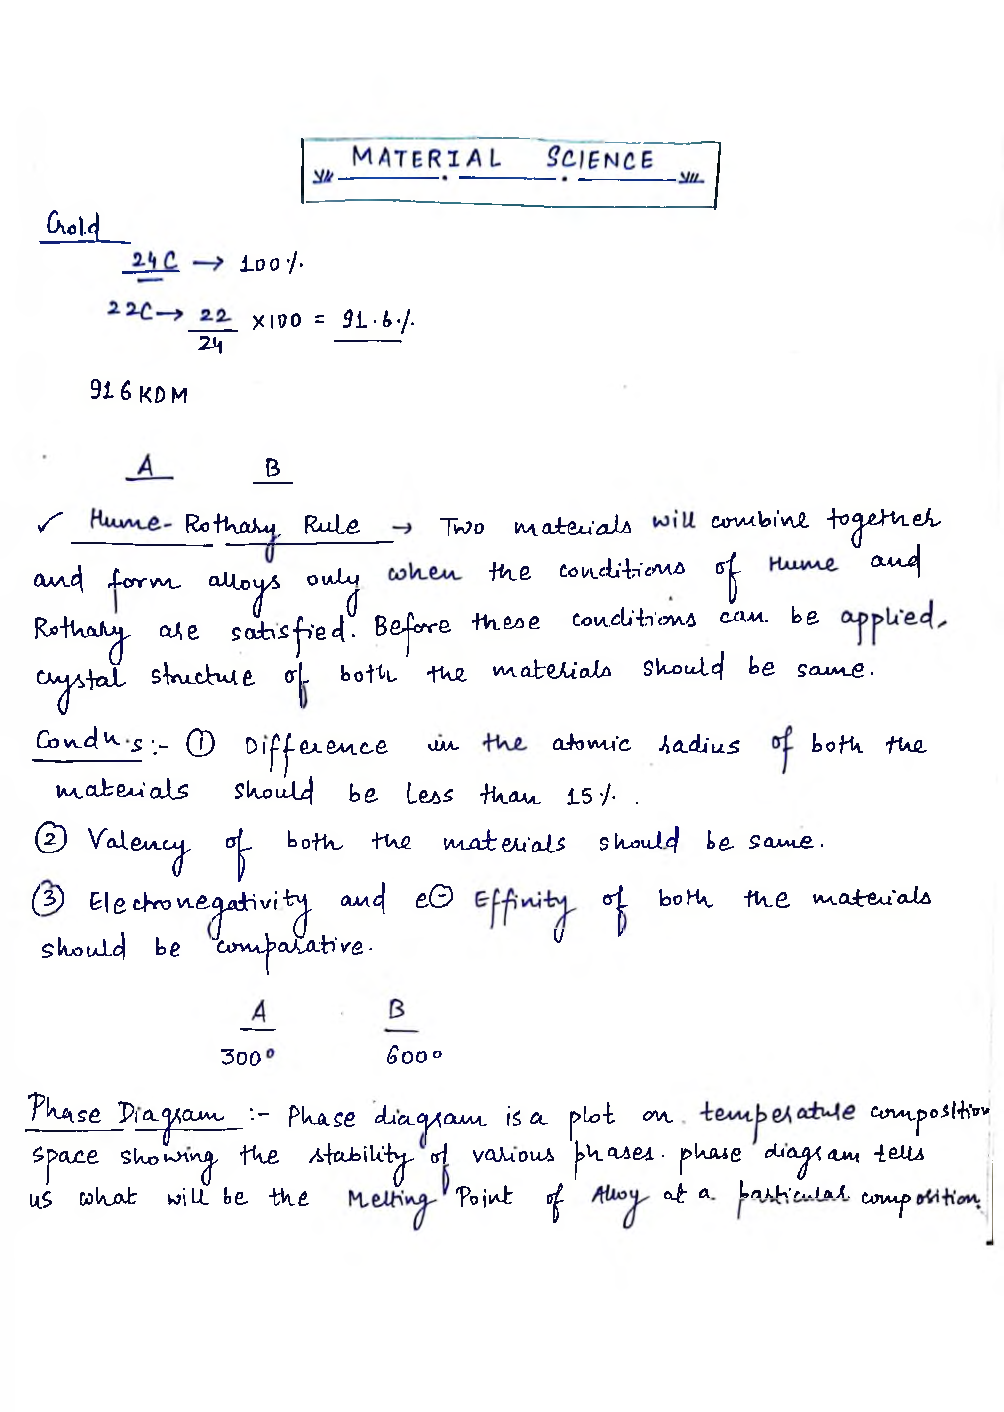 MATERIAL SCIENCE
Gold
24C → 100%
22C → 22/24 × 100 = 91.6%
916 KDM
A B
✓ Hume-Rothary Rule → Two materials will combine together
and form alloys only when the conditions of Hume and
Rothary are satisfied. Before these conditions can be applied,
crystal structure of both the materials should be same.
Condn.s :- ① Difference in the atomic radius of both the
materials should be less than 15%.
② Valency of both the materials should be same.
③ Electronegativity and e⊖ Effinity of both the materials
should be comparative.
A B
300° 600°
Phase Diagram :- Phase diagram is a plot on temperature composition
space showing the stability of various phases. phase diagram tells
us what will be the Melting Point of Alloy at a particular composition.